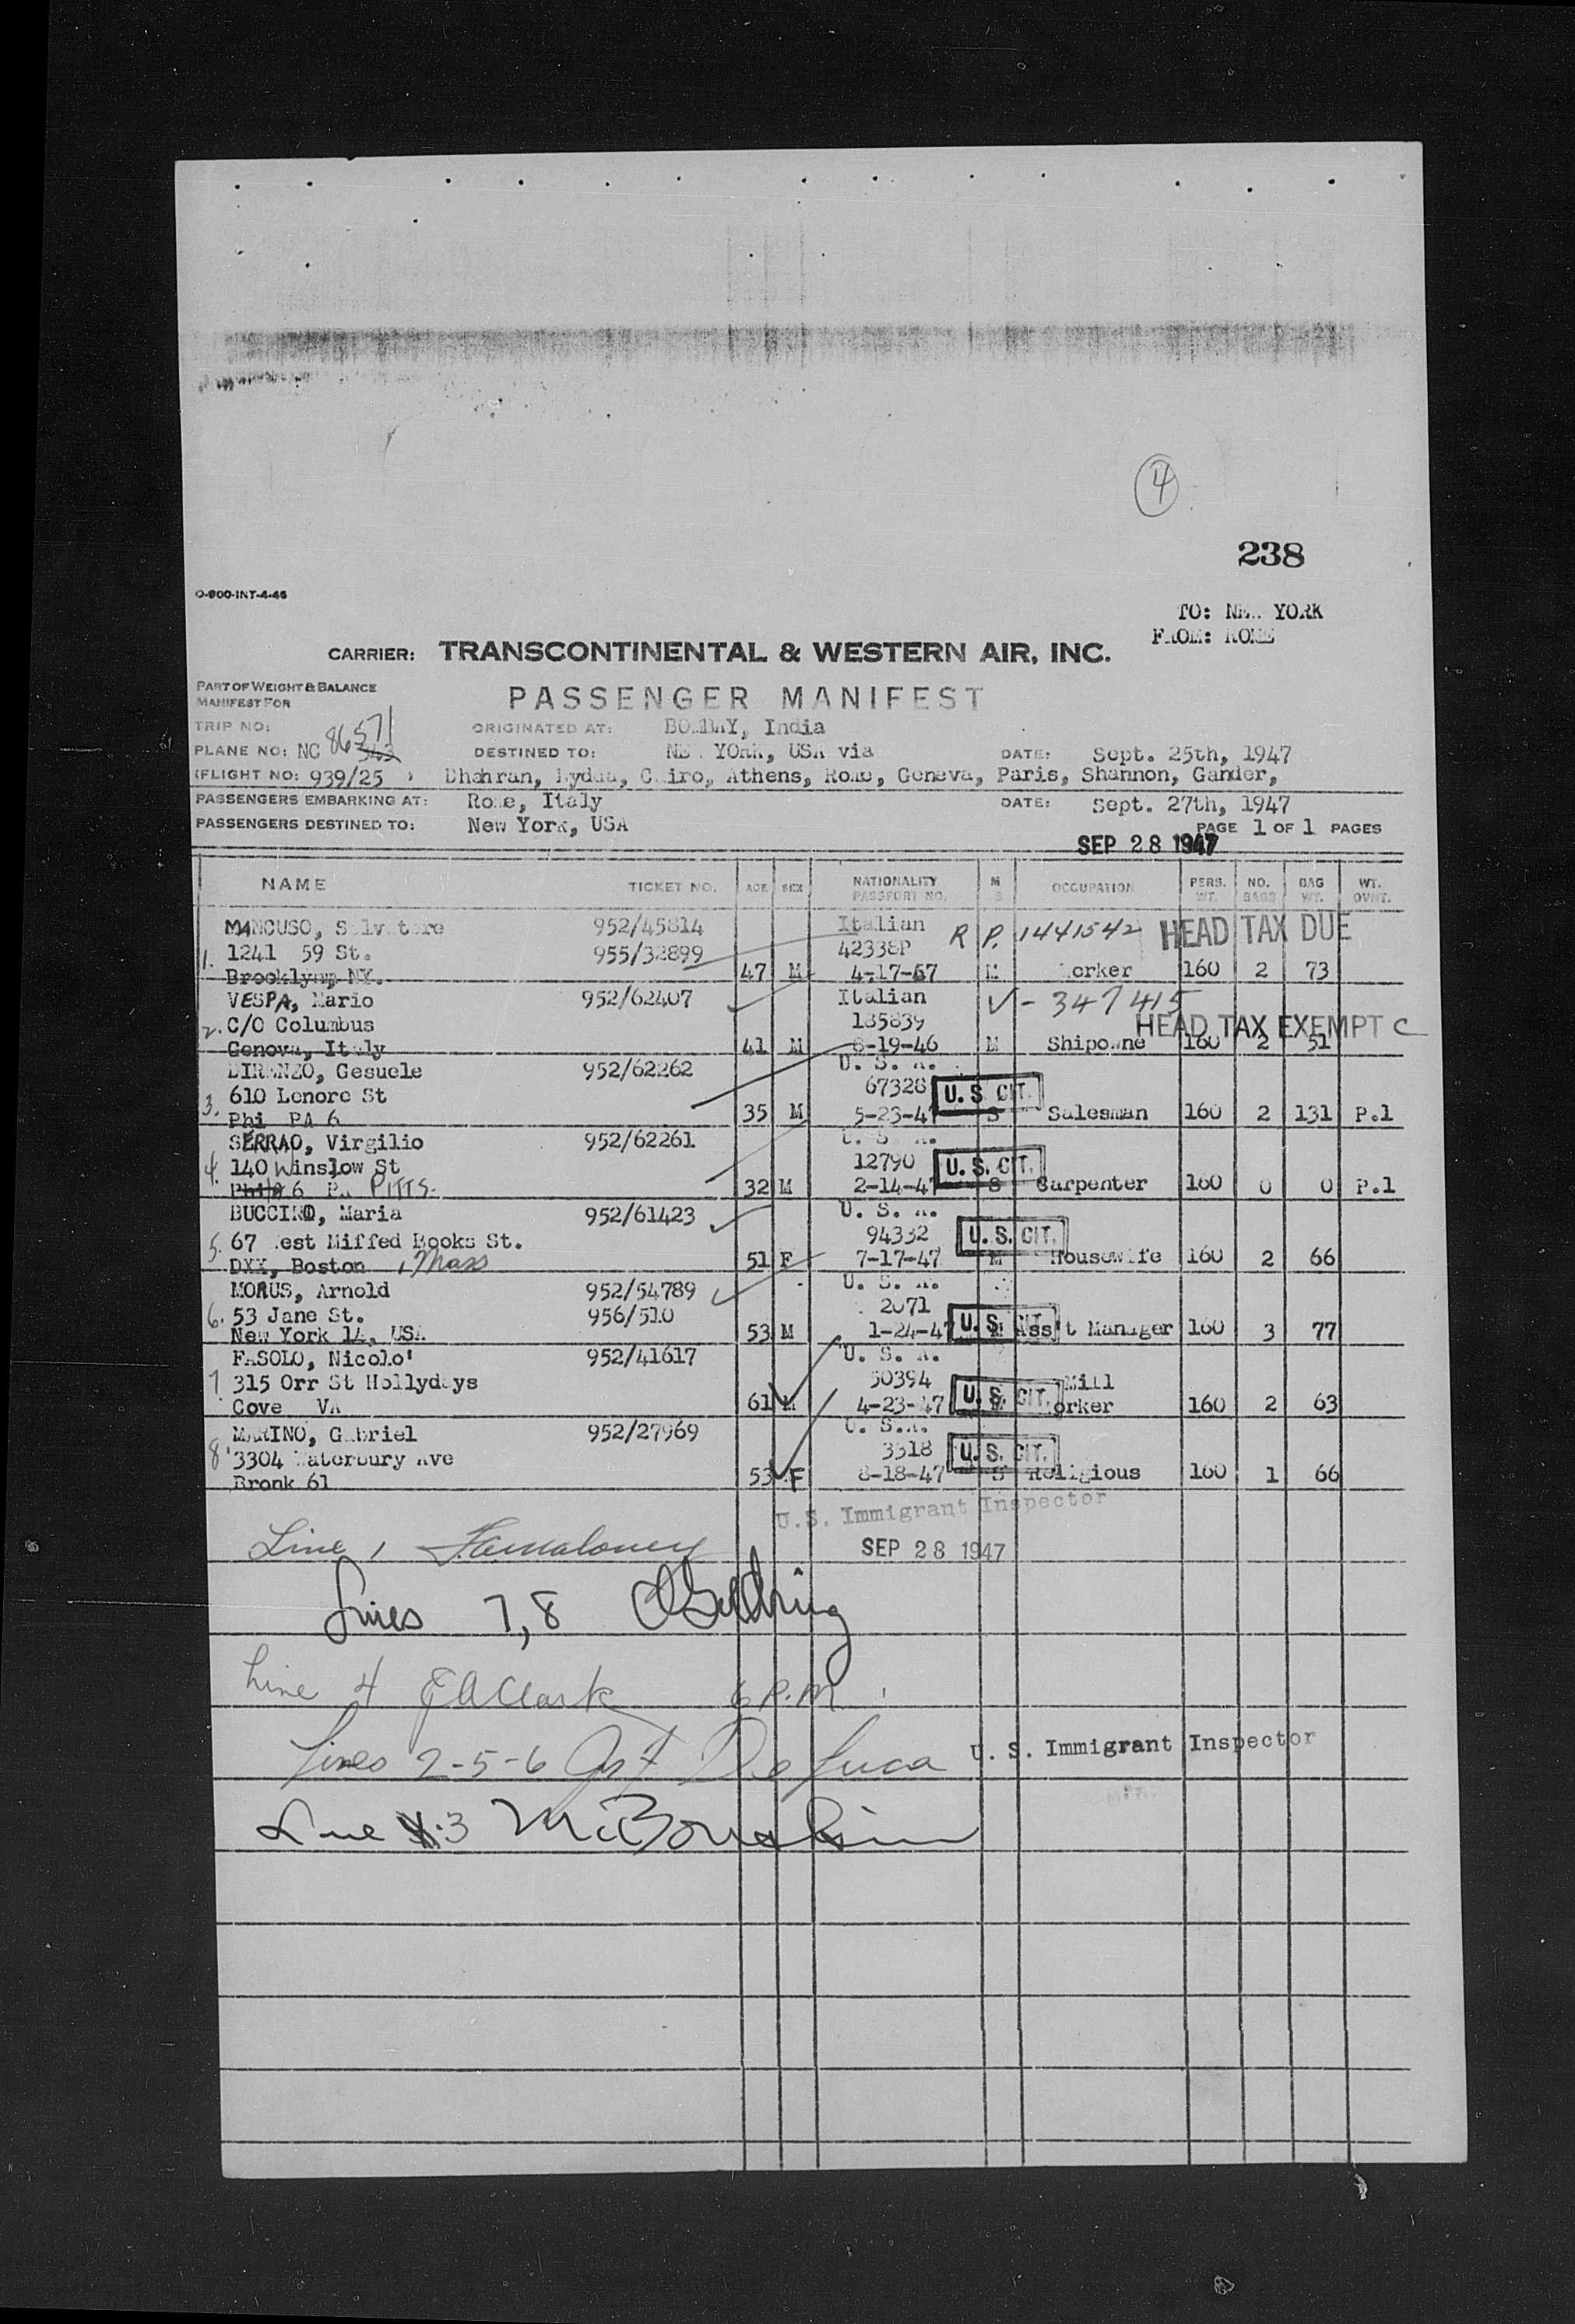 4
238
O-800-INT-4-46
TO: NEW YORK
FROM: ROME
CARRIER: TRANSCONTINENTAL & WESTERN AIR, INC.
PART OF WEIGHT & BALANCE
MANIFEST FOR
PASSENGER MANIFEST
TRIP NO:
ORIGINATED AT: BOMBAY, India
PLANE NO: NC 86571
DESTINED TO: NEW YORK, USA via DATE: Sept. 25th, 1947
(FLIGHT NO: 939/25 ) Dhahran, Lydda, Cairo, Athens, Rome, Geneva, Paris, Shannon, Gander,
PASSENGERS EMBARKING AT: Rome, Italy DATE: Sept. 27th, 1947
PASSENGERS DESTINED TO: New York, USA PAGE 1 OF 1 PAGES
SEP 28 1947
NAME TICKET NO. AGE SEX NATIONALITY PASSPORT NO. M S OCCUPATION PERS. WT. NO. BAGS BAG WT. WT. OVNT.
MANCUSO, Salvatore 952/45814 Italian R P. 1441542 HEAD TAX DUE
1. 1241 59 St. 955/32899 42338P
Brooklyn, NY. 47 M 4-17-67 M Worker 160 2 73
VESPA, Mario 952/62407 Italian V - 347415
2. C/O Columbus 185839 HEAD TAX EXEMPT C
Genova, Italy 41 M 8-19-46 M Shipowne 160 2 51
DIRENZO, Gesuele 952/62262 U. S. A.
3. 610 Lenore St 67328 U.S. CIT.
Phi PA 6 35 M 5-23-47 S Salesman 160 2 131 P.1
SERRAO, Virgilio 952/62261 U. S. A.
4. 140 Winslow St 12790 U.S. CIT.
Phila 6 PA PITTS. 32 M 2-14-47 S Carpenter 160 0 0 P.1
BUCCINO, Maria 952/61423 U. S. A.
5. 67 West Miffed Books St. 94332 U.S. CIT.
DXX, Boston, Mass 51 F 7-17-47 M Housewife 160 2 66
MORUS, Arnold 952/54789 U. S. A.
6. 53 Jane St. 956/510 2071
New York 14, USA 53 M 1-24-47 U.S. CIT. M Ass't Manager 160 3 77
FASOLO, Nicolo' 952/41617 U. S. A.
7 315 Orr St Hollydays 50394 U.S. CIT. Mill
Cove VA 61 M 4-23-47 Worker 160 2 63
MARINO, Gabriel 952/27969 U. S.A.
8 3304 Waterbury Ave 3318 U.S. CIT.
Bronk 61 53 F 8-18-47 S Religious 160 1 66
U.S. Immigrant Inspector
Line 1 SEP 28 1947
Lines 7,8
Line 4 E A Clark 6 P.M.
Lines 2-5-6 De Luca U. S. Immigrant Inspector
Line 3